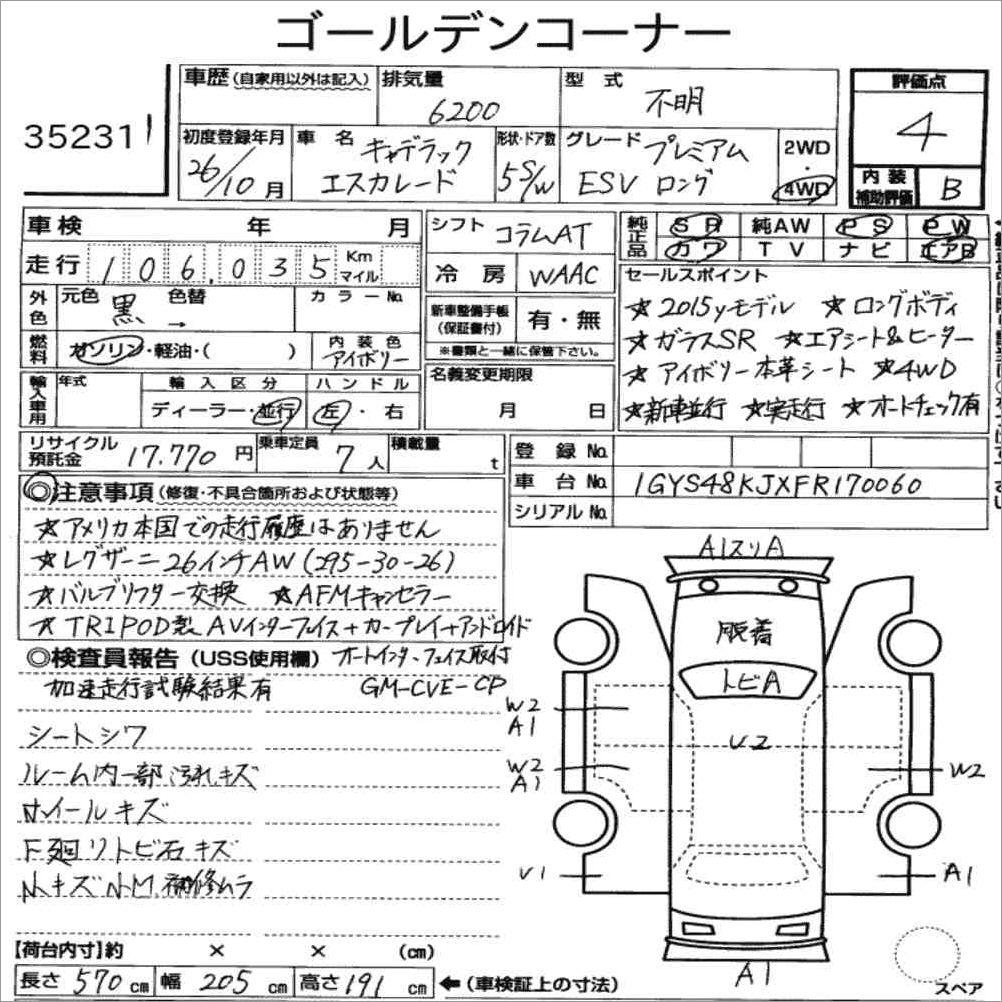 ゴールデンコーナー
35231
車歴 (自家用以外は記入)
排気量
6200
型式
不明
評価点
4
初度登録年月
26/10月
車名
キャデラック
エスカレード
形状・ドア数
5 S/W
グレード
プレミアム
ESV ロング
2WD
・
4WD
内装
補助評価
B
車検 年 月
走行 106,035 Km
マイル
シフト コラムAT
冷房 WAAC
純正品
SR 純AW PS PW
カワ TV ナビ エアB
外色
元色 黒 色替 →
カラーNo.
燃料
ガソリン・軽油・( )
内装色
アイボリー
新車整備手帳
(保証書付)
有・無
※書類と一緒に保管下さい。
セールスポイント
☆2015yモデル ☆ロングボディ
☆ガラスSR ☆エアシート&ヒーター
☆アイボリー本革シート ☆4WD
☆新車並行 ☆実走行 ☆オートチェック有
輸入車用
年式
輸入区分
ディーラー・並行
ハンドル
左・右
名義変更期限
月 日
リサイクル
預託金
17.770円
乗車定員
7人
積載量
t
登録No.
車台No. 1GYS48KJXFR170060
シリアルNo.
◎注意事項 (修復・不具合箇所および状態等)
☆アメリカ本国での走行履歴はありません
☆レグザーニ26インチAW (295-30-26)
☆バルブリフター交換 ☆AFMキャンセラー
☆TRIPOD製AVインターフェイス+カープレイ+アンドロイド
オートインターフェイス取付
GM-CVE-CP
◎検査員報告 (USS使用欄)
加速走行試験結果有
シートシワ
ルーム内一部汚れキズ
ホイールキズ
F廻りトビ石キズ
小キズ 小凹 補修ムラ
A1スリA
脱着
トビA
W2
A1
U2
W2
A1
W2
U1
A1
A1
スペア
【荷台内寸】約 × × (cm)
長さ 570 cm 幅 205 cm 高さ 191 cm ←(車検証上の寸法)